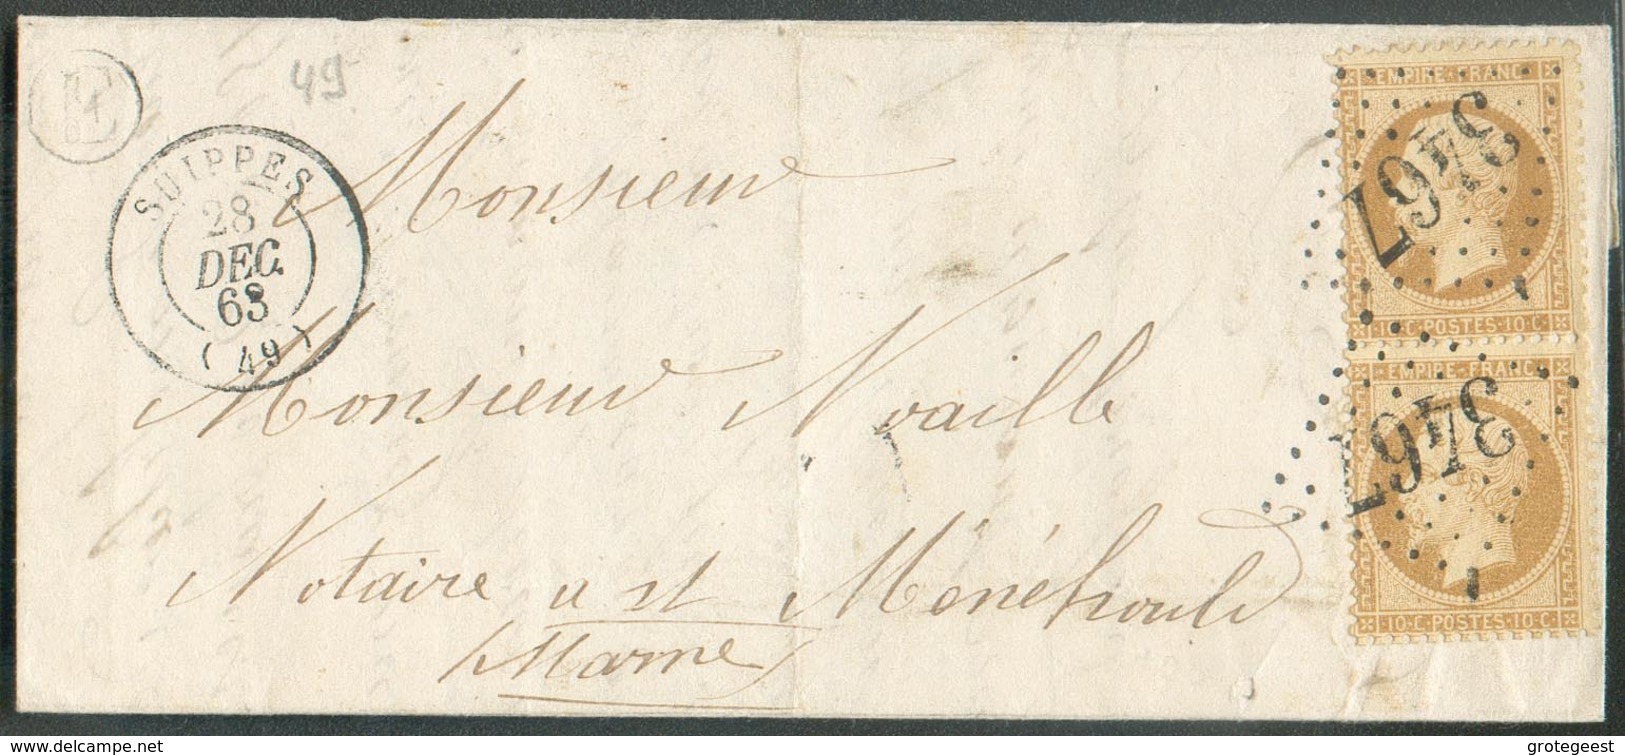 E
49
SUIPPES
28
DEC.
63
( 49 )
Monsieur
Monsieur Noaille
Notaire a st Ménéhould
Marne
EMPIRE FRANC
3467
10·C·POSTES·10·C
EMPIRE·FRANC
3467
10·C·POSTES·10·C
www.delcampe.net
grotegeest